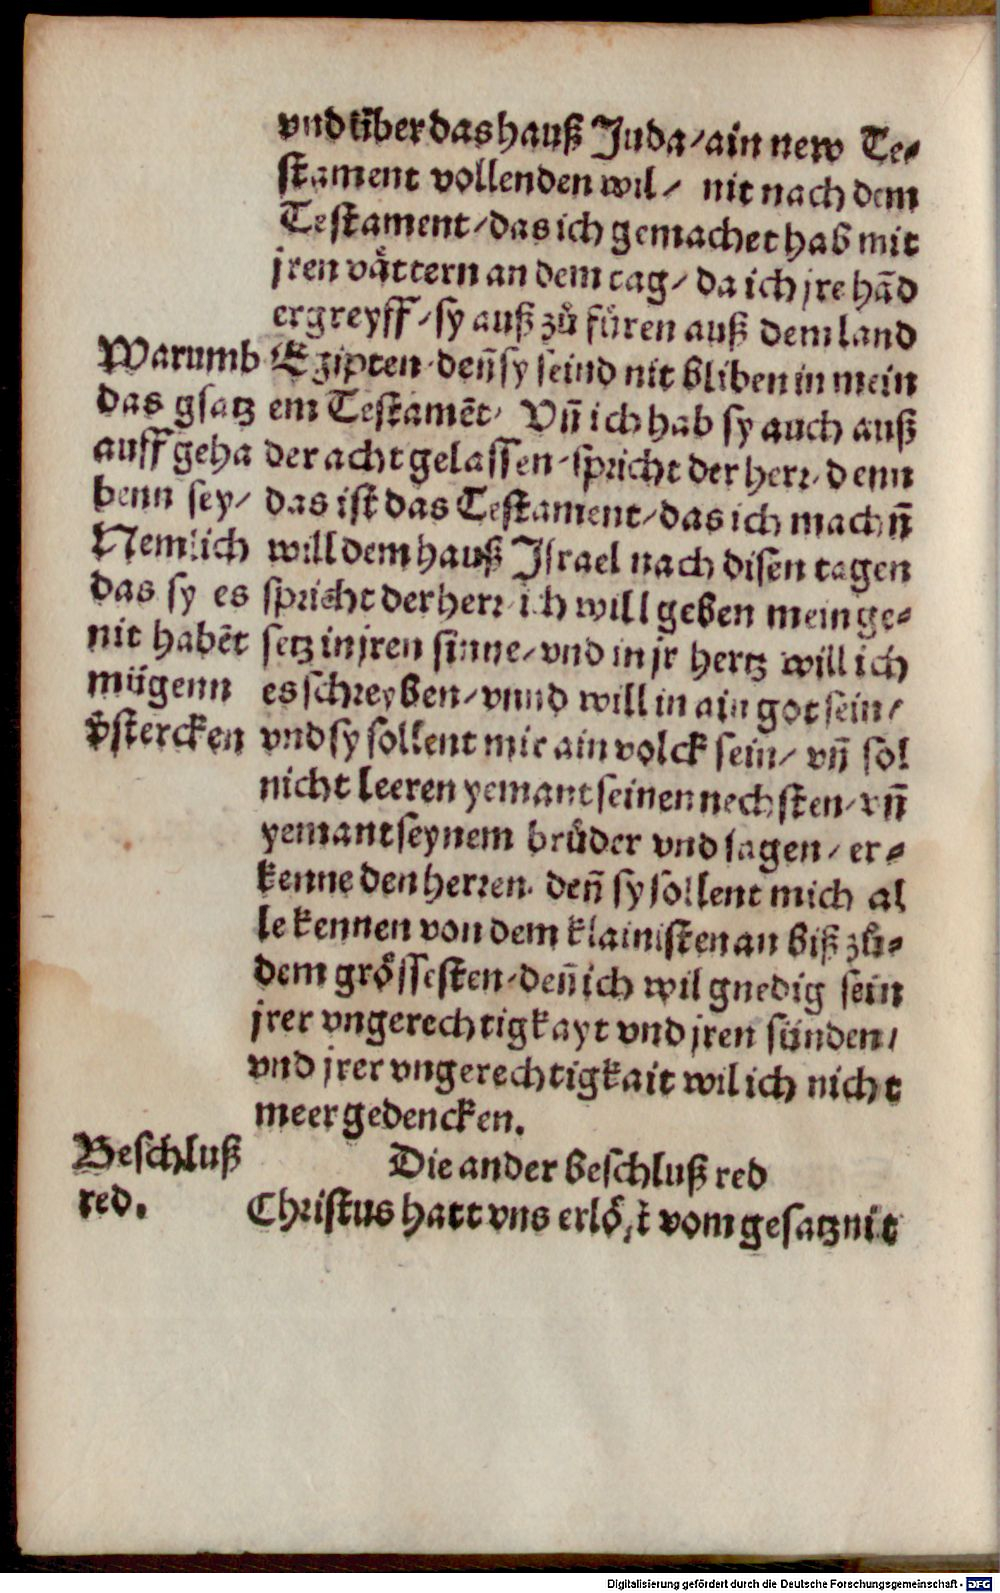 vnd über das hauß Juda/ ain new Te-
stament vollenden wil/ nit nach dem
Testament/ das ich gemachet hab mit
jren våttern an dem tag/ da ich jre hãd
ergreyff/ sy auß zů fůren auß dem land
Egipten. deñ sy seind nit bliben in mein
em Testamẽt/ Vñ ich hab sy auch auß
der acht gelassen/ spricht der herr/ denn
das ist das Testament/ das ich mach ñ
will dem hauß Israel nach disen tagen
spricht der herr/ ich will geben mein ge-
setz in jren sinne/ vnd in jr hertz will ich
es schreyben/ vnnd will in ain got sein/
vnd sy sollent mir ain volck sein/ vñ sol
nicht leeren yemant seinen nechsten/ vñ
yemant seynem brůder vnd sagen/ er-
kenne den herren. deñ sy sollent mich al
le kennen von dem klainisten an biß zů-
dem grössesten/ deñ ich wil gnedig sein
jrer vngerechtigkayt vnd jren sünden/
vnd jrer vngerechtigkait wil ich nicht
meer gedencken.
Warumb
das gsatz
auff geha
benn sey/
Nemlich
das sy es
nit habẽt
mügenn
v̊stercken
Die ander beschluß red
Beschluß
red.
Christus hatt vns erlößt vom gesatz nit
Digitalisierung gefördert durch die Deutsche Forschungsgemeinschaft - DFG